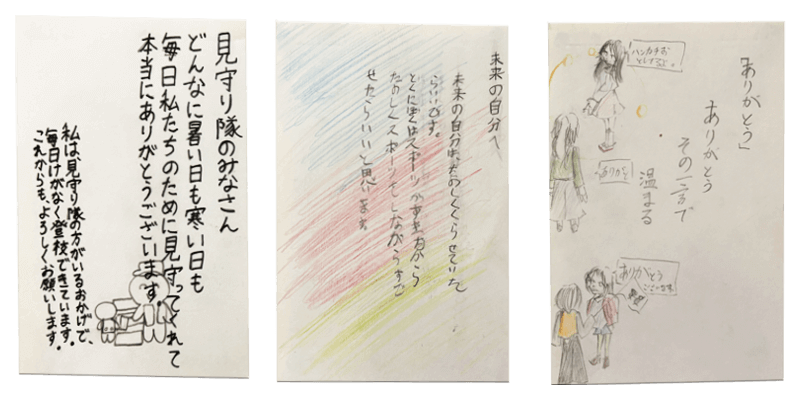 見守り隊のみなさん
どんなに暑い日も寒い日も
毎日私たちのために見守ってくれて
本当にありがとうございます。
私は、見守り隊の方がいるおかげで、
毎日けがなく登校できています。
これからも、よろしくお願いします。
未来の自分へ
未来の自分がたのしくくらせていた
らいいです。
とくにぼくはスポーツがすきだから
たのしくスポーツをしながらすご
せたらいいと思います。
「ありがとう」
ありがとう
その一言で
温まる
ハンカチお
としてるよ。
ありがとう
ありがとう